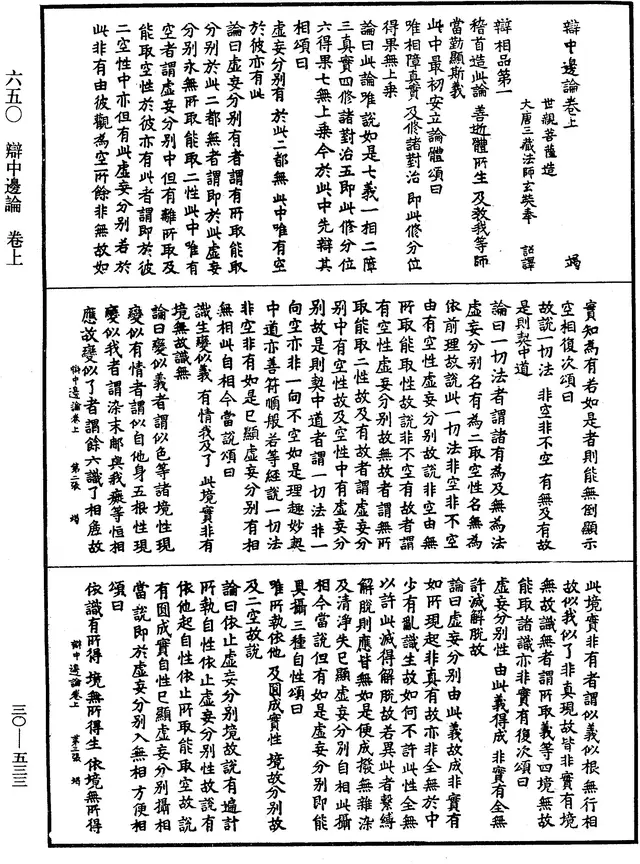 六五〇　辯中邊論　卷上
三〇—五三三
辯中邊論卷上
世親菩薩造　竭
大唐三藏法師玄奘奉　詔譯
辯相品第一
稽首造此論　善逝體所生　及教我等師
當勤顯斯義
此中最初安立論體頌曰
唯相障真實　及修諸對治　即此修分位
得果無上乘
論曰此論唯說如是七義一相二障
三真實四修諸對治五即此修分位
六得果七無上乘今於此中先辯其
相頌曰
虛妄分別有　於此二都無　此中唯有空
於彼亦有此
論曰虛妄分別有者謂有所取能取
分別於此二都無者謂即於此虛妄
分別永無所取能取二性此中唯有
空者謂虛妄分別中但有離所取及
能取空性於彼亦有此者謂即於彼
二空性中亦但有此虛妄分別若於
此非有由彼觀為空所餘非無故如
實知為有若如是者則能無倒顯示
空相復次頌曰
故說一切法　非空非不空　有無及有故
是則契中道
論曰一切法者謂諸有為及無為法
虛妄分別名有為二取空性名無為
依前理故說此一切法非空非不空
由有空性虛妄分別故說非空由無
所取能取性故說非不空有故者謂
有空性虛妄分別故無故者謂無所
取能取二性故及有故者謂虛妄分
別中有空性故及空性中有虛妄分
別故是則契中道者謂一切法非一
向空亦非一向不空如是理趣妙契
中道亦善符順般若等經說一切法
非空非有如是已顯虛妄分別有相
無相此自相今當說頌曰
識生變似義　有情我及了　此境實非有
境無故識無
論曰變似義者謂似色等諸境性現
變似有情者謂似自他身五根性現
變似我者謂染末那與我癡等恒相
應故變似了者謂餘六識了相麁故
辯中邊論卷上　第二張　竭
此境實非有者謂似義似根無行相
故似我似了非真現故皆非實有境
無故識無者謂所取義等四境無故
能取諸識亦非實有復次頌曰
虛妄分別性　由此義得成　非實有全無
許滅解脫故
論曰虛妄分別由此義故成非實有
如所現起非真有故亦非全無於中
少有亂識生故如何不許此性全無
以許此滅得解脫故若異此者繫縛
解脫則應皆無如是便成撥無雜染
及清淨失已顯虛妄分別自相此攝
相今當說但有如是虛妄分別即能
具攝三種自性頌曰
唯所執依他　及圓成實性　境故分別故
及二空故說
論曰依止虛妄分別境故說有遍計
所執自性依止虛妄分別性故說有
依他起自性依止所取能取空故說
有圓成實自性已顯虛妄分別攝相
當說即於虛妄分別入無相方便相
頌曰
依識有所得　境無所得生　依境無所得
辯中邊論卷上　第三張　竭